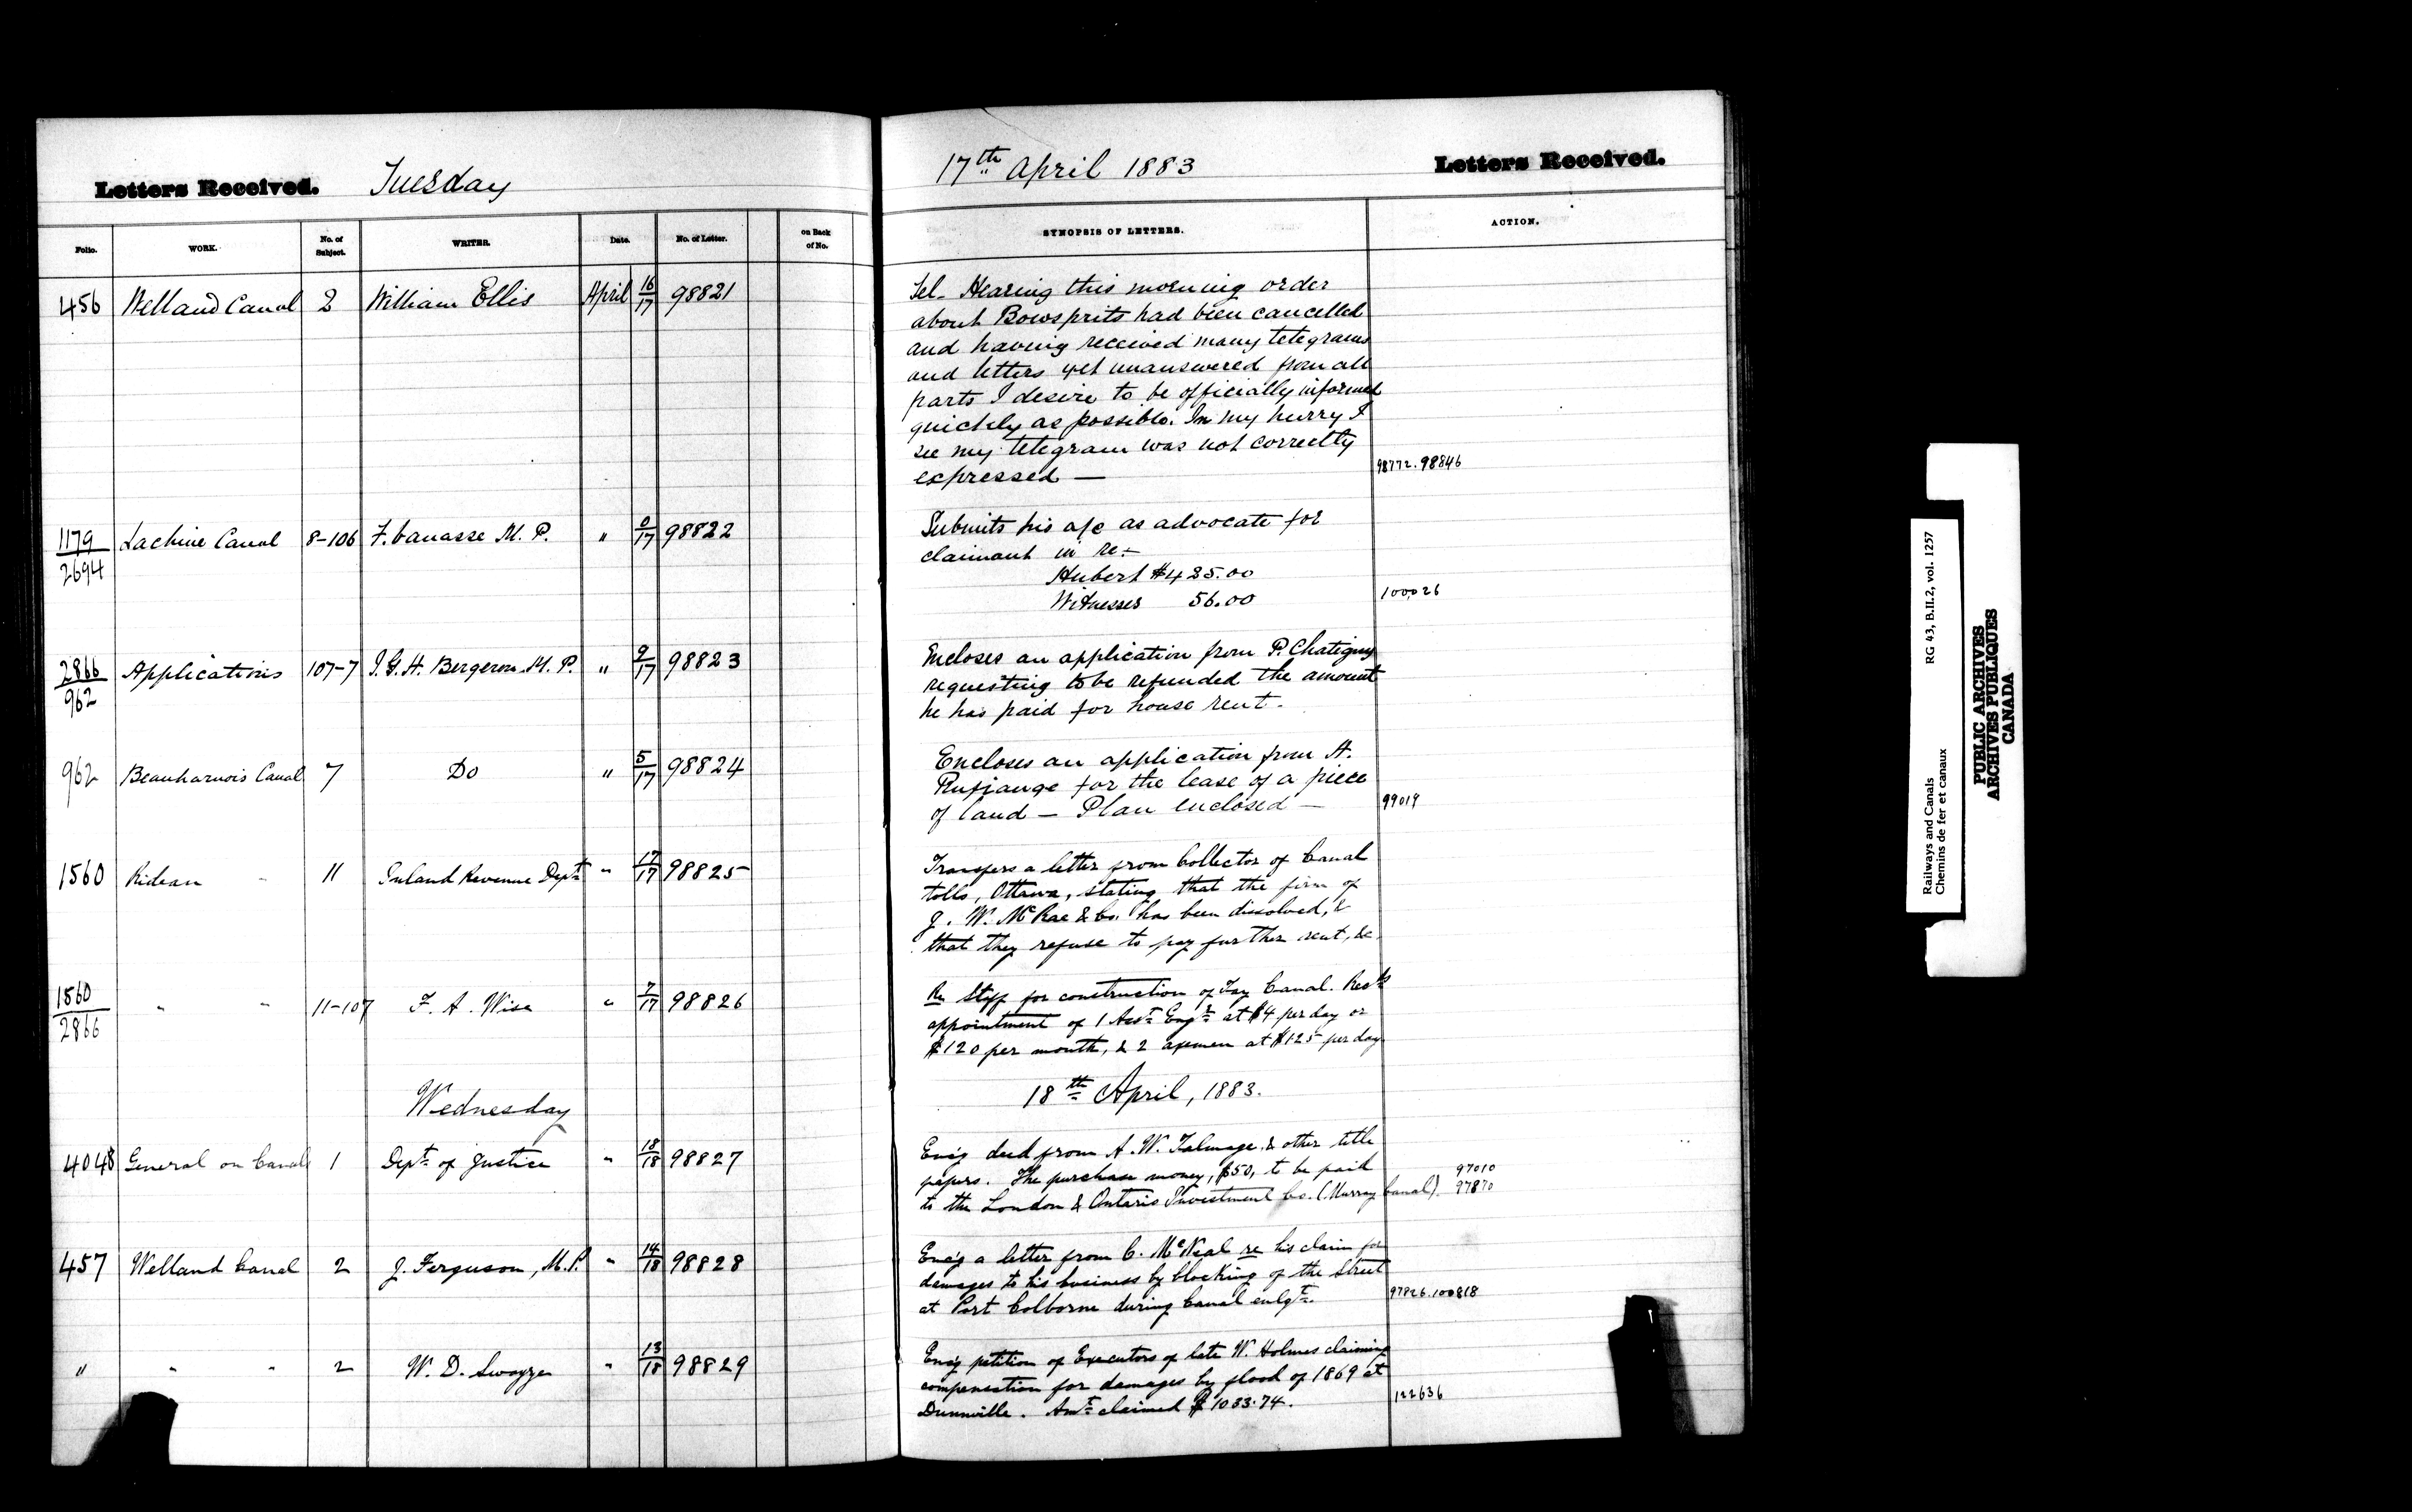 Letters Received. Tuesday
17th April 1883 Letters Received.
Folio. WORK. No. of Subject. WRITER. Date. No. of Letter. on Back of No.
SYNOPSIS OF LETTERS. ACTION.
456 Welland Canal 2 William Ellis April 16/17 98821
Tel- Hearing this morning order
about Bowsprits had been cancelled
and having received many telegrams
and letters yet unanswered from all
parts I desire to be officially informed
quickly as possible. In my hurry I
see my telegram was not correctly
expressed —
98772. 98846
1179/2694 Lachine Canal 8-106 F. Vanasse M. P. " 0/17 98822
Submits his a/c as advocate for
claimant in re:-
Hubert $485.00
Witnesses 56.00
100026
2866/962 Applications 107-7 J. G. H. Bergeron M. P. " 9/17 98823
Encloses an application from P. Chatigny
requesting to be refunded the amount
he has paid for house rent.
962 Beauharnois Canal 7 Do " 5/17 98824
Encloses an application from A.
for the lease of a piece
of land — Plan enclosed —
99019
1560 Rideau " 11 Inland Revenue Dept " 17/17 98825
Transfers a letter from Collector of Canal
tolls, Ottawa, stating that the firm of
J. W. McRae & Co. has been dissolved, &
that they refuse to pay further rent, &c.
1560/2866 " " 11-107 F. A. Wise " 7/17 98826
Re Staff for construction of Tay Canal. Recds
appointment of 1 Asst Engr at $4 per day or
$120 per month, & 2 axemen at $1.25 per day
Wednesday
18th April, 1883.
4048 General on Canals 1 Dept of Justice " 18/18 98827
Encg deed from A. W. Talmage & other title
papers. The purchase money, $50, to be paid
to the London & Ontario Investment Co. (Murray Canal).
97010
97870
457 Welland Canal 2 J. Ferguson, M.P. " 14/18 98828
Encg a letter from C. McNeal re his claim for
damages to his business by blocking of the Street
at Port Colborne during Canal enlgt.
97826. 100818
" " " 2 W. D. Swayze " 13/18 98829
Encg petition of Executors of late W. Holmes claiming
compensation for damages by flood of 1869 at
Dunnville. Amt claimed $1083.74.
122636
Railways and Canals RG 43, B.II.2, vol. 1257
Chemins de fer et canaux
PUBLIC ARCHIVES
ARCHIVES PUBLIQUES
CANADA